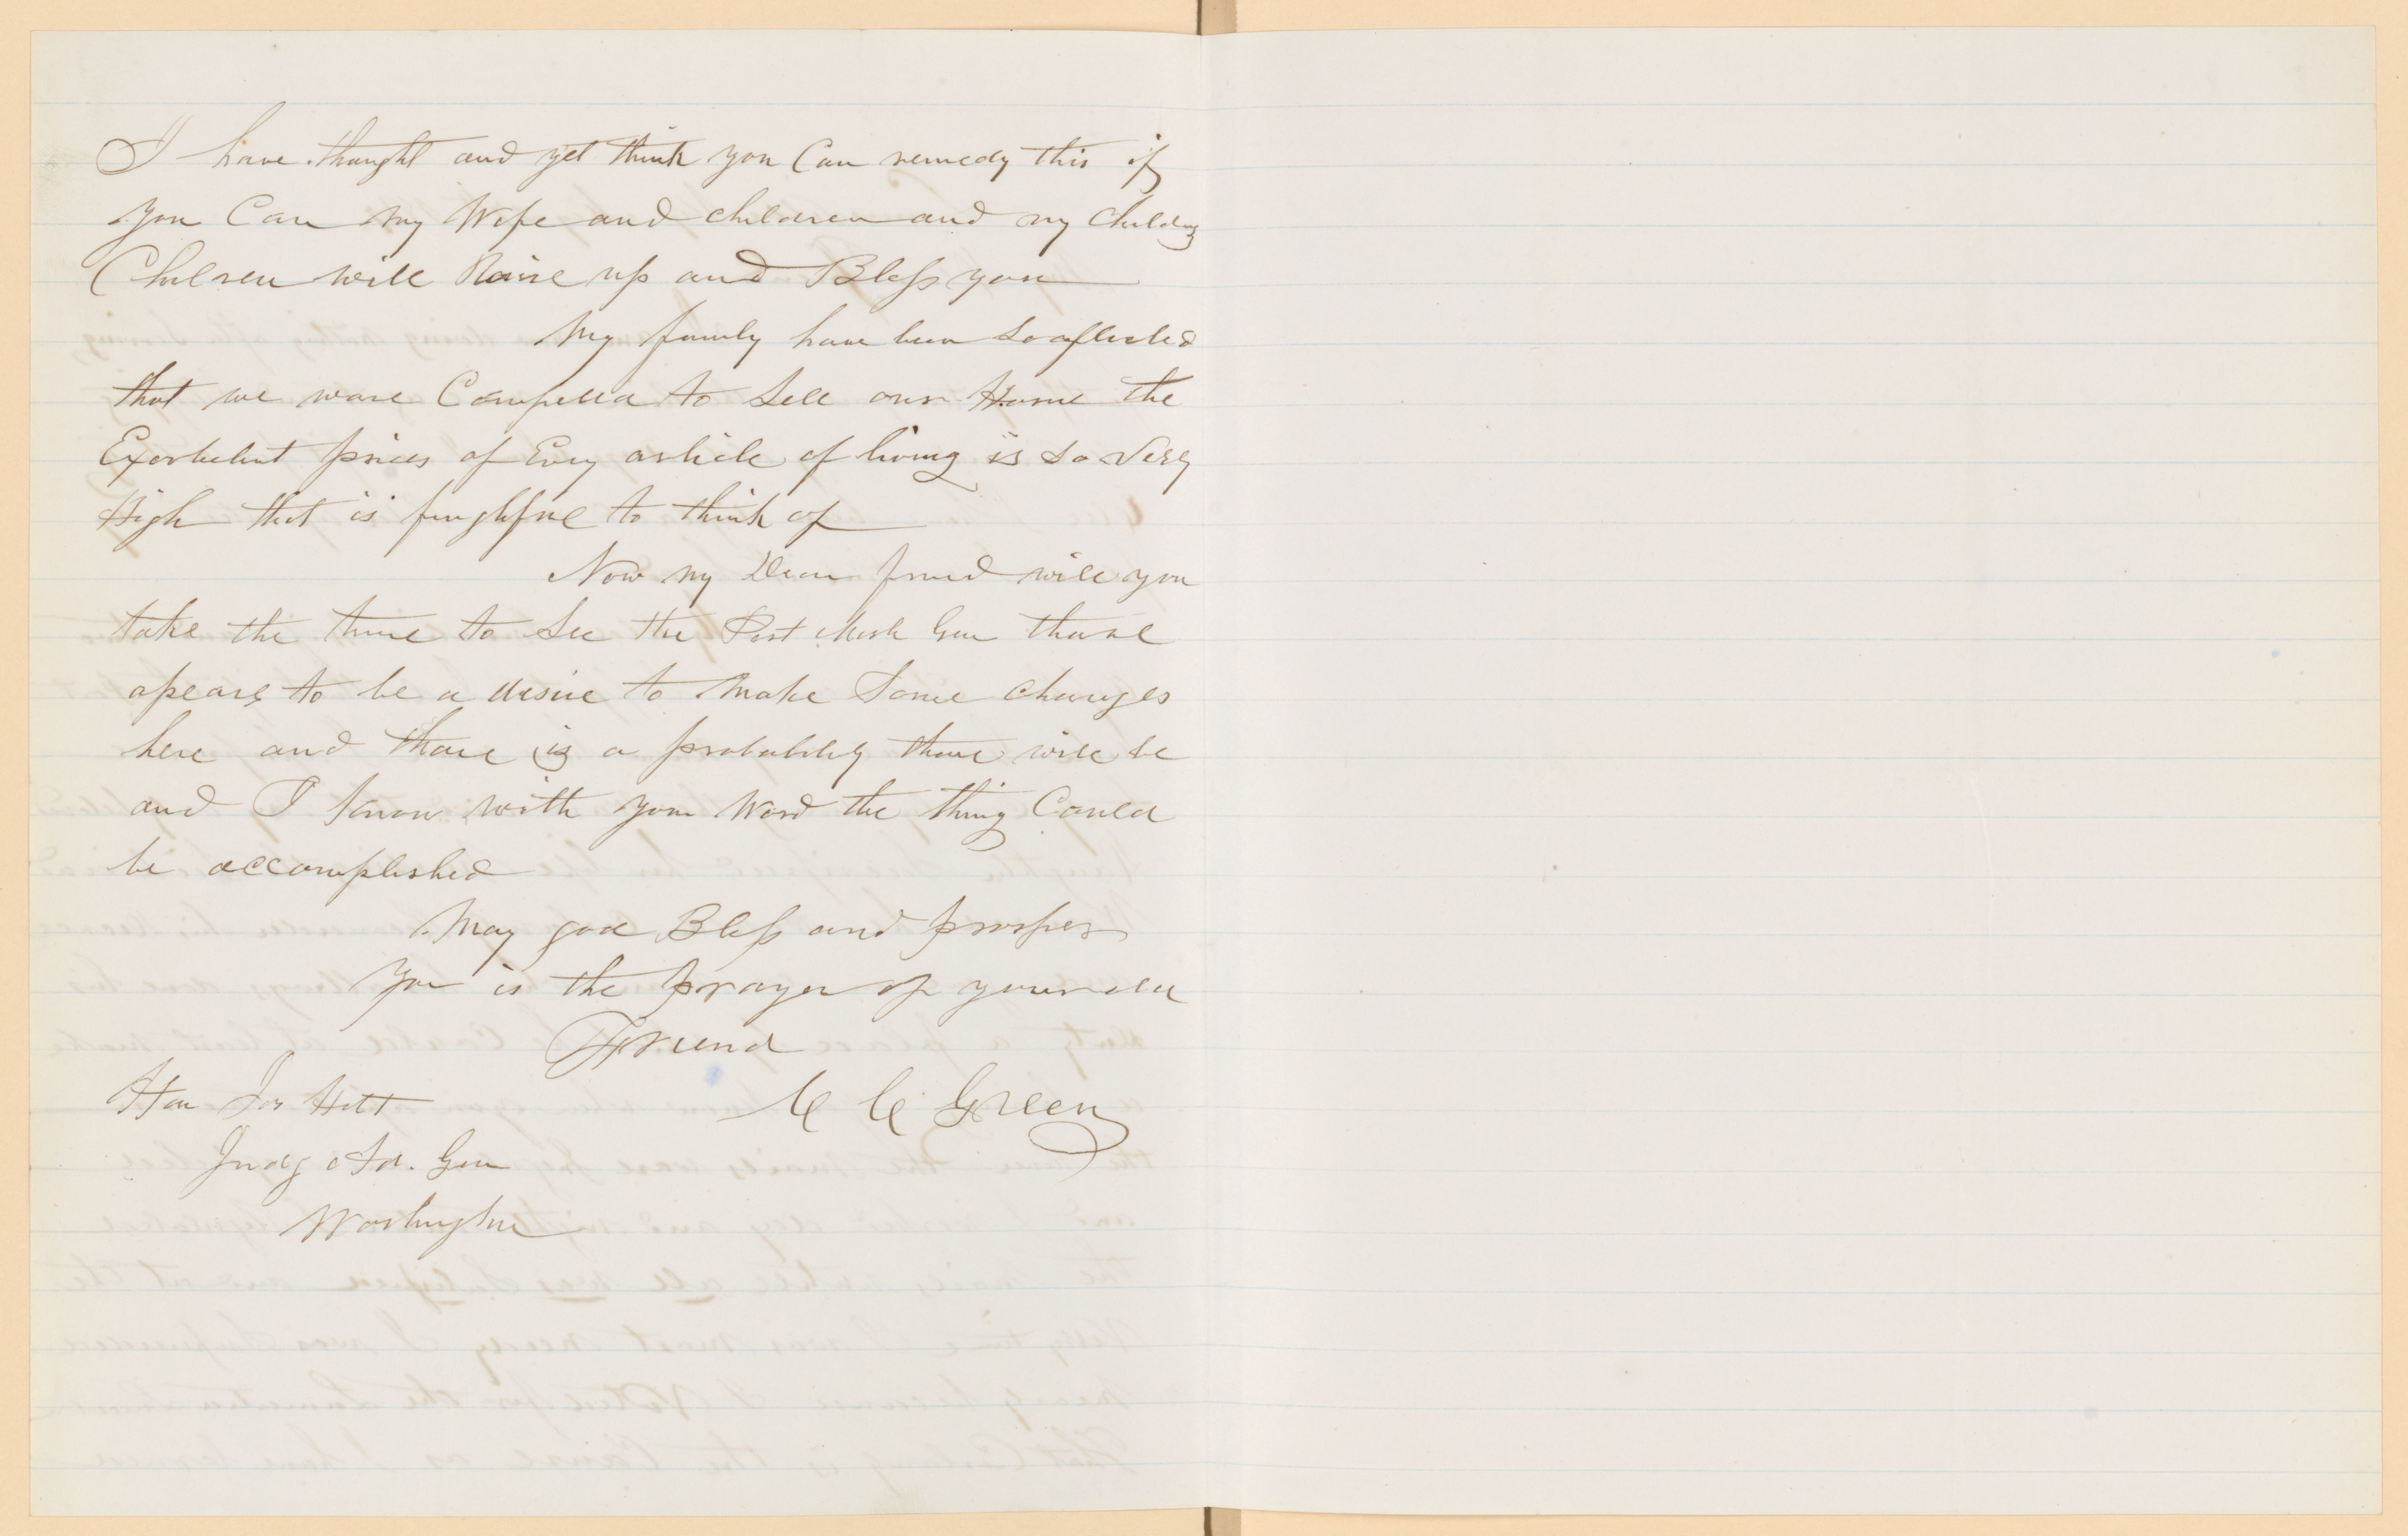 I have thought and yet think you Can remedy this if
you Can my Wife and children and my Childrns
Children will Raise up and Bless you
My family have been So aflicted
that we ware Compelld to Sell our Home the
Exorbebent prices of Evry article of living is So Very
High that is frughful to think of
Now my Dear frind will you
take the time to See the Post Mast Gen thare
apears to be a desire to Make Some changes
here and thare is a probability thare will be
and I know with your Word the thing Could
be accomplished
May god Bless and prosper
you is the prayer of your old
Friend
C C Green
Hon Jos Holt
Judg Ad. Gen
Washington